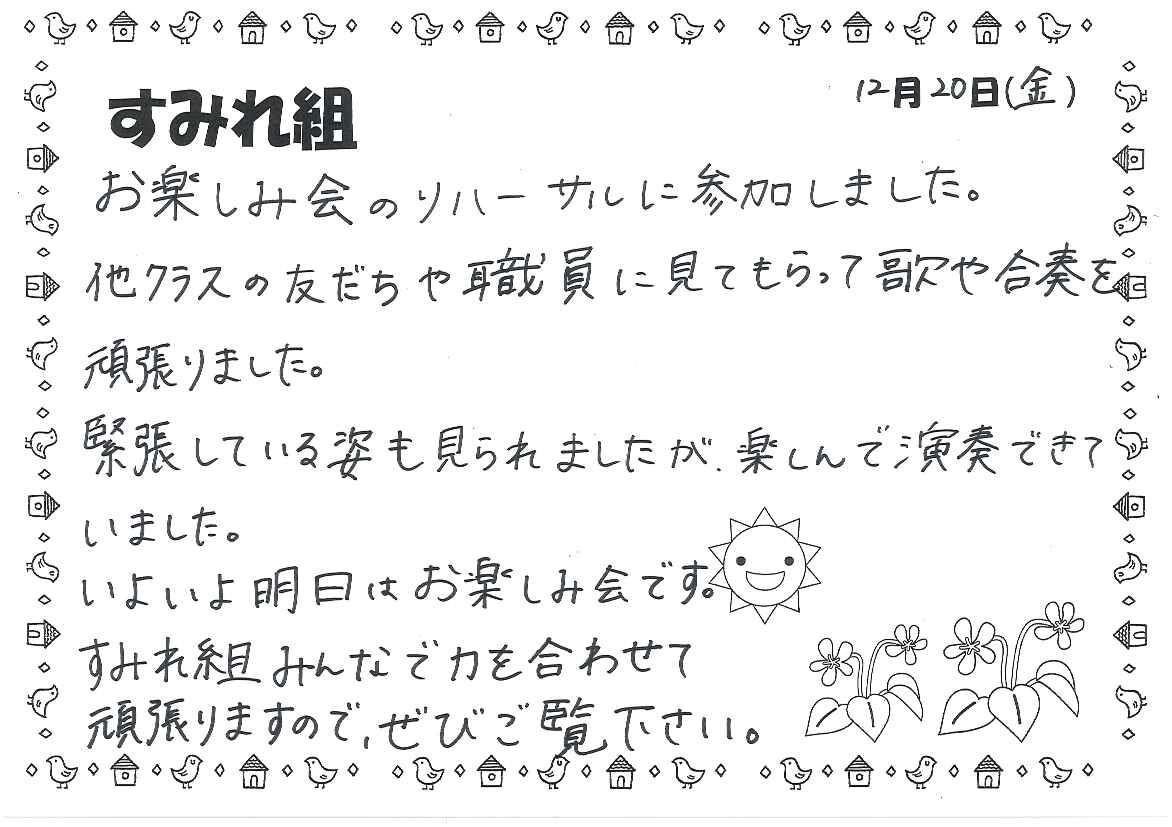 12月20日(金)
すみれ組
お楽しみ会のリハーサルに参加しました。
他クラスの友だちや職員に見てもらって歌や合奏を
頑張りました。
緊張している姿も見られましたが、楽しんで演奏できて
いました。
いよいよ明日はお楽しみ会です。
すみれ組みんなで力を合わせて
頑張りますので、ぜひご覧下さい。